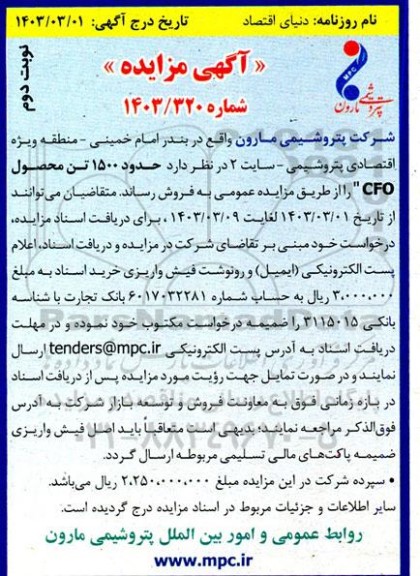 نام روزنامه: دنیای اقتصاد تاریخ درج آگهی: ۱۴۰۳/۰۳/۰۱
نوبت دوم
« آگهی مزایده »
شماره ۱۴۰۳/۳۲۰
MPC
پتروشیمی مارون
شرکت پتروشیمی مارون واقع در بندر امام خمینی - منطقه ویژه
اقتصادی پتروشیمی - سایت ۲ در نظر دارد حدود ۱۵۰۰ تن محصول
CFO" را از طریق مزایده عمومی به فروش رساند. متقاضیان می‌توانند
از تاریخ ۱۴۰۳/۰۳/۰۱ لغایت ۱۴۰۳/۰۳/۰۹ ، برای دریافت اسناد مزایده،
درخواست خود مبنی بر تقاضای شرکت در مزایده و دریافت اسناد، اعلام
پست الکترونیکی (ایمیل) و رونوشت فیش واریزی خرید اسناد به مبلغ
۳.۰۰۰.۰۰۰ ریال به حساب شماره ۶۰۱۷۰۳۲۲۸۱ بانک تجارت با شناسه
بانکی ۳۱۱۵۰۱۵ را ضمیمه درخواست مکتوب خود نموده و در مهلت
دریافت اسناد به آدرس پست الکترونیکی tenders@mpc.ir ارسال
نمایند و در صورت تمایل جهت رؤیت مورد مزایده پس از دریافت اسناد
در بازه زمانی فوق به معاونت فروش و توسعه بازار شرکت به آدرس
فوق‌الذکر مراجعه نمایند؛ بدیهی است متعاقباً باید اصل فیش واریزی
ضمیمه پاکت‌های مالی تسلیمی مربوطه ارسال گردد.
• سپرده شرکت در این مزایده مبلغ ۲،۲۵۰،۰۰۰،۰۰۰ ریال می‌باشد.
سایر اطلاعات و جزئیات مربوط در اسناد مزایده درج گردیده است.
روابط عمومی و امور بین الملل پتروشیمی مارون
www.mpc.ir
۰۲۱-۸۸۳۴۹۶۷۰-۵